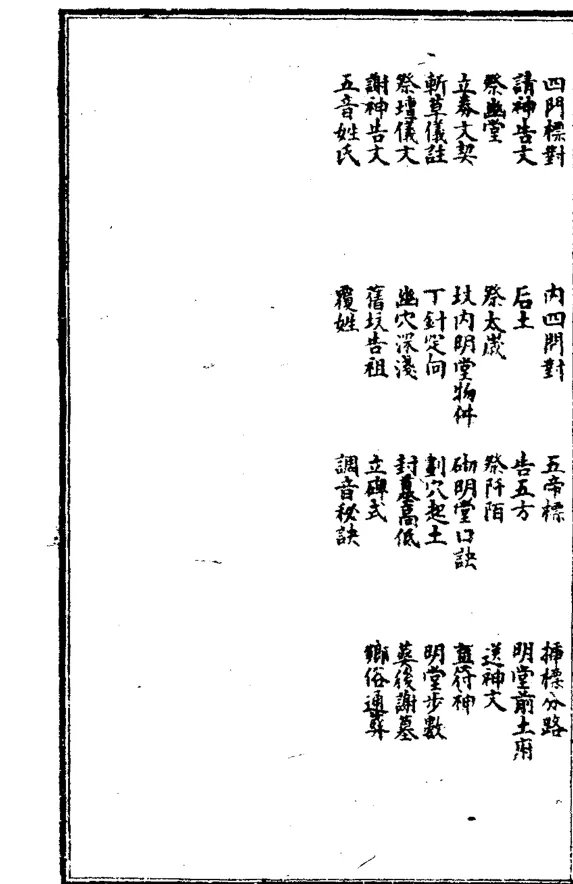 四門標對　內四門對　五帝標　插標分路
請神告文　后土　告五方　明堂前土府
祭幽堂　祭太歲　祭阡陌　送神文
立券文契　坟內明堂物件　砌明堂口訣　畫符神
斬草儀註　丁針定向　劃穴起土　明堂步數
祭壇儀文　幽穴深淺　封墓高低　葬後謝墓
謝神告文　舊坟告祖　立碑式　鄉俗通葬
五音姓氏　覆姓　調音秘訣